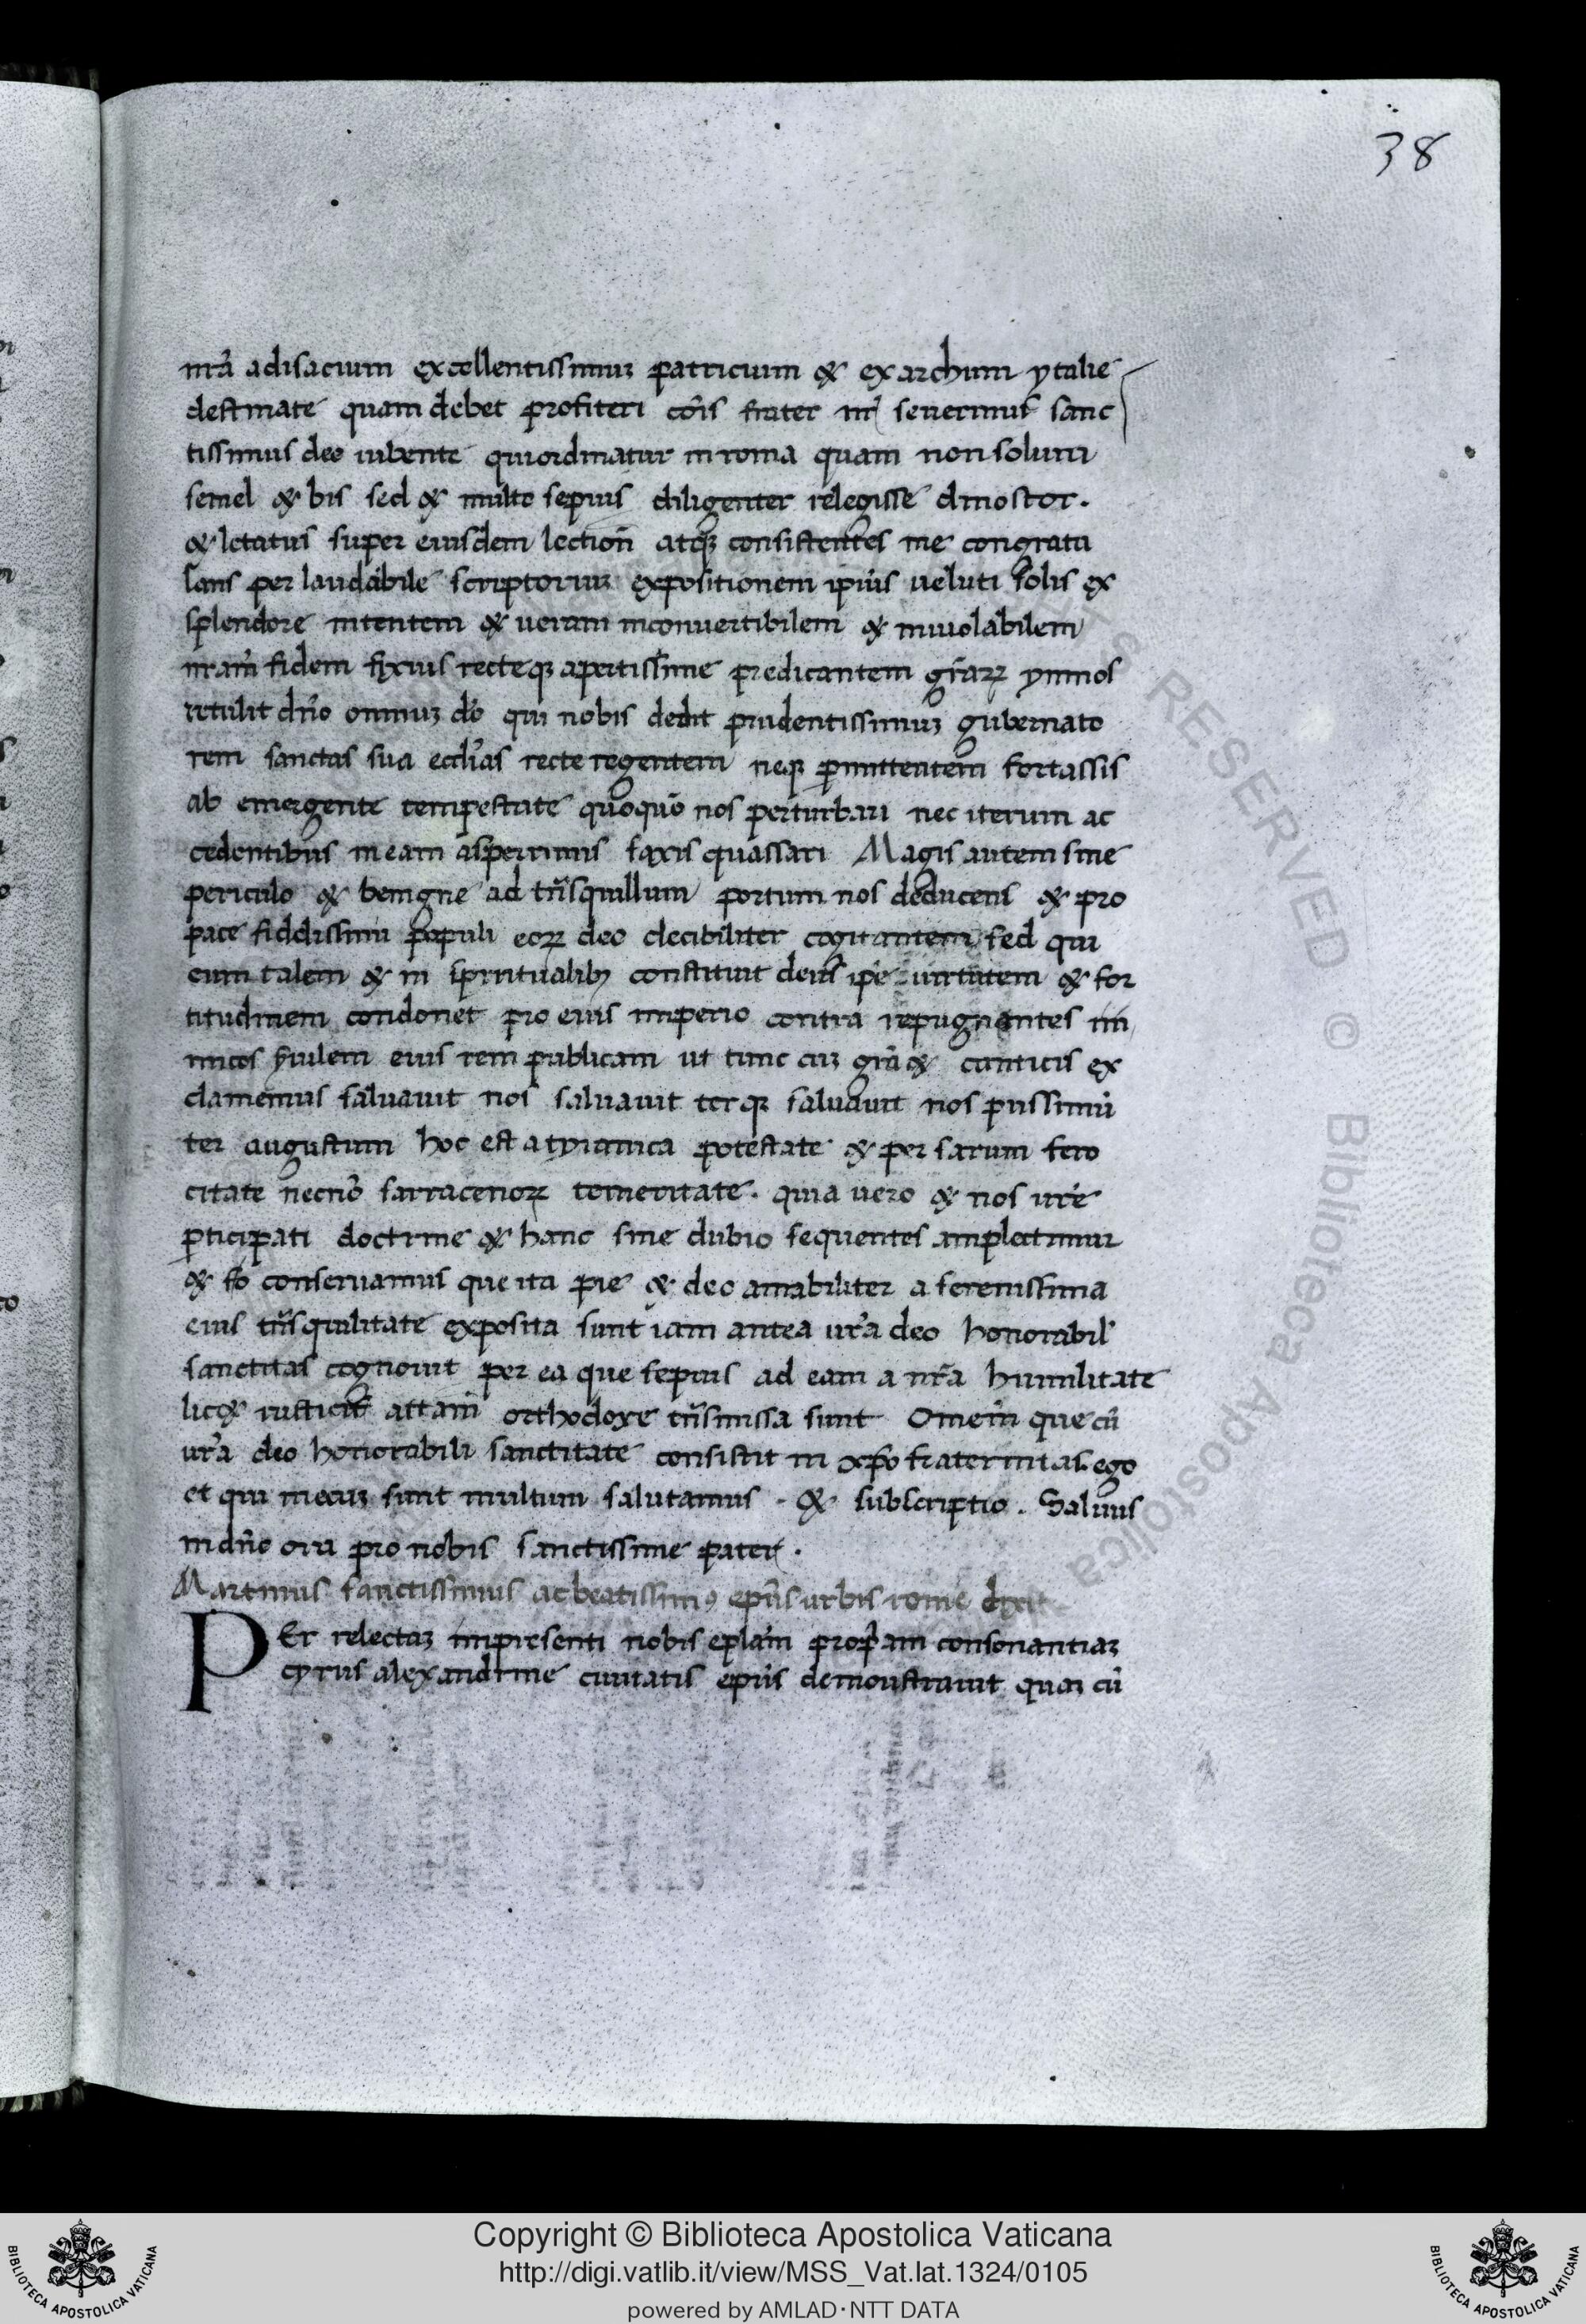 38
nrã adisacium excellentissimuz patricium & exarchum ytalie
destinate quam debet profiteri cõis frater nr̃ seuerinus sanc
tissimus deo iubente quiordinatur inroma quam nonsolum
semel & bis sed & multo sepius diligenter relegisse dinoscor.
& letatus super eiusdem lectioñ atqz consistentes me congratu
lans per laudabile scriptoruz expositionem ipius ueluti solis ex
splendore intentem & ueram inconuertibilem & inuiolabilem
nram̃ fidem fixius recteqz apertissime predicantem grãꝝ ymnos
retulit dño omniuz dõ qui nobis dedit prudentissimuz gubernato
rem sanctas sua eccl̃ias recte regentem neqz ꝑmittentem fortassis
ab emergente tempestate quoquõ nos perturbari nec iterum ac
cedentibus ineam asperrimis saxis quassari Magis autem sine
periculo & benigne ad trñsquillum portum nos deducens & pro
pace fiddissimi populi eoꝝ deo decibiliter cogitantem sed qui
eum talem & in spiritualibꝫ constituit deus ipẽ uirtutem & for
titudinem condonet pro eius imperio contra repugnantes ini
micos ciuilem eius rem publicam ut tunc cuz grã & canticis ex
clamemus saluauit nos saluauit terqz saluauit nos piissimũ
ter augustum hoc est atyranica potestate & persarum fero
citate necnõ sarracenoꝝ temeritate. quia uero & nos ur̃e
ꝑticipati doctrine & hanc sine dubio sequentes amplectimur
& sõ conseruamus que ita pie & deo amabiliter a serenissima
eius trñsquilitate exposita sunt iam antea ur̃a deo honorabil'
sanctitas cognouit per ea que sepius ad eam a nr̃a humilitate
lic& rusticis attam̃ orthodoxe trñsmissa sunt Omem̃ que cũ
ur̃a deo honorabili sanctitate consistit in xp̃o fraternitas ego
et qui mecuz sunt multum salutamus . & subscriptio . Saluus
indño ora pro nobis sanctissime pater.
Martinus sanctissimus acbeatissimꝰ epũs urbis rome dixit
PEr relectaz inpresenti nobis eplam̃ propriam consonantiaz
cyrus alexandrine ciuitatis epũs demonstrauit quaz cũ
RIGHTS RESERVED © Biblioteca Apostolica
Copyright © Biblioteca Apostolica Vaticana
http://digi.vatlib.it/view/MSS_Vat.lat.1324/0105
powered by AMLAD·NTT DATA
BIBLIOTECA APOSTOLICA VATICANA
BIBLIOTECA APOSTOLICA VATICANA